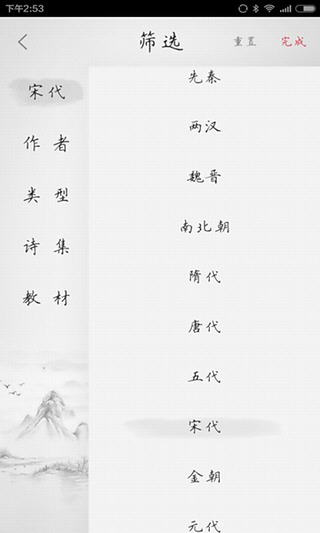 下午2:53
筛选
重置
完成
宋代
作者
类型
诗集
教材
先秦
两汉
魏晋
南北朝
隋代
唐代
五代
宋代
金朝
元代